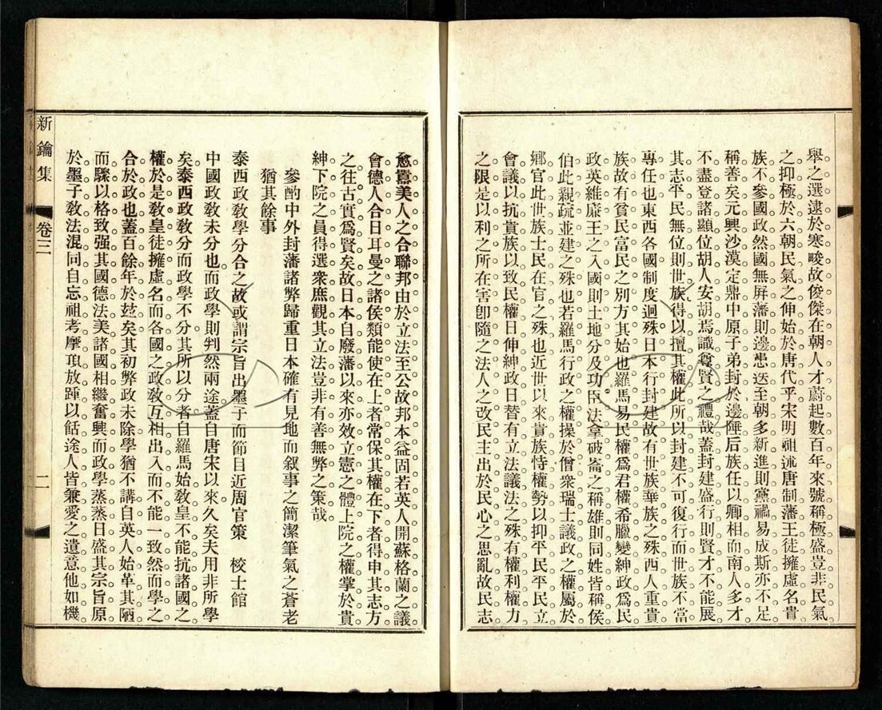 舉之選逮於寒畯故俊傑在朝人才蔚起數百年來號稱極盛豈非民氣
之抑極於六朝民氣之伸始於唐代乎宋明祖述唐制藩王徒擁虛名貴
族不參國政然國無屏藩則邊患迭至朝多新進則黨禍易成斯亦不足
稱善矣元興沙漠定鼎中原子弟封於邊陲后族任以卿相而南人多才
不盡登諸顯位胡人安胡焉識尊賢之禮哉蓋封建盛行則賢才不能展
其志平民無位則世族得以擅其權此所以封建不可復行而世族不當
專任也東西各國制度迥殊日本行封建故有世族華族之殊西人重貴
族故有貧民富民之別方其始也羅馬易民權爲君權希臘變紳政爲民
政英維廉王之入國則土地分及功臣法拿破崙之稱雄則同姓皆稱侯
伯此親疏並建之殊也若羅馬行政之權操於僧衆瑞士議政之權屬於
鄉官此世族士民在官之殊也近世以來貴族恃權勢以抑平民平民立
會議以抗貴族以致民權日伸紳政日替有立法議法之殊有權利權力
之限是以利之所在害卽隨之法人之改民主出於民心之思亂故民志
愈囂美人之合聯邦由於立法至公故邦本益固若英人開蘇格蘭之議
會德人合日耳曼之諸侯類能使在上者常保其權在下者得申其志方
之往古實爲賢矣故日本自廢藩以來亦效立憲之體上院之權掌於貴
紳下院之員得選衆庶觀其立法豈非有善無弊之策哉
參酌中外封藩諸弊歸重日本確有見地而叙事之簡潔筆氣之蒼老
猶其餘事
泰西政教學分合之故或謂宗旨出墨子而節目近周官策 校士館
中國政教未分也而政學則判然兩途蓋自唐宋以來久矣夫用非所學
矣泰西政教分而政學不分其所以分者自羅馬始教皇不能抗諸國之
權於是教皇徒擁虛名而各國之政教互相出入而不能一致然而學之
合於政也蓋百餘年於玆矣其初弊政未除學猶不講自英人始革其陋
而驟以格致强其國德法美諸國相繼奮興而政學蒸蒸日盛其宗旨原
於墨子教法混同自忘祖考摩頂放踵以餂途人皆兼愛之遺意他如機
新鑰集 卷三 一